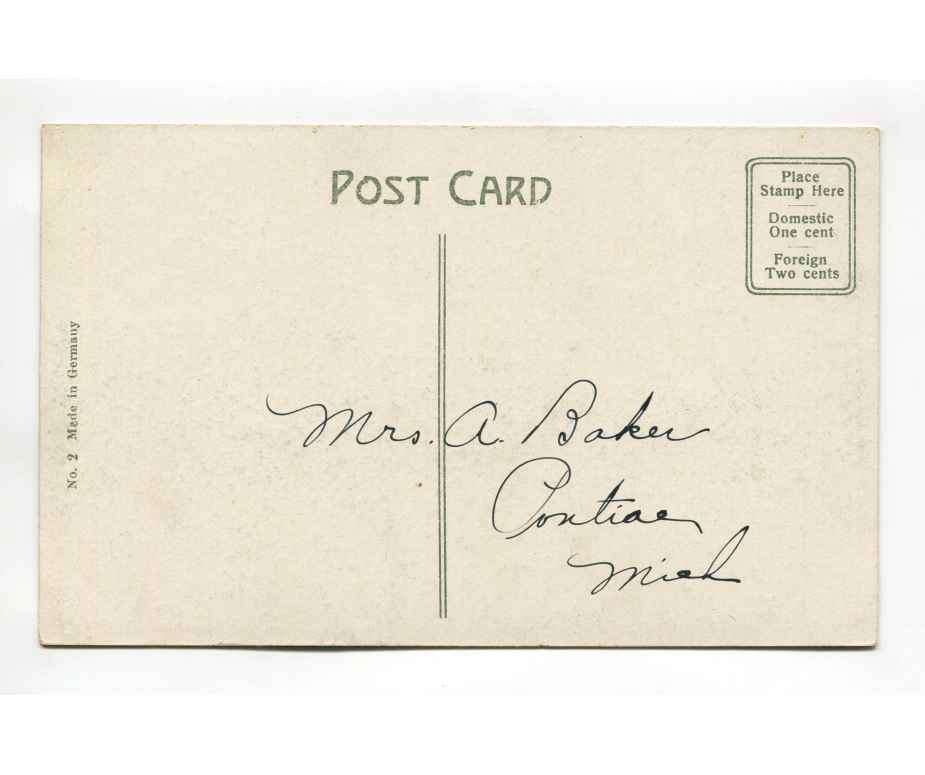 POST CARD
Place
Stamp Here
Domestic
One cent
Foreign
Two cents
No. 2 Made in Germany
Mrs. A. Baker
Pontiac
Mich